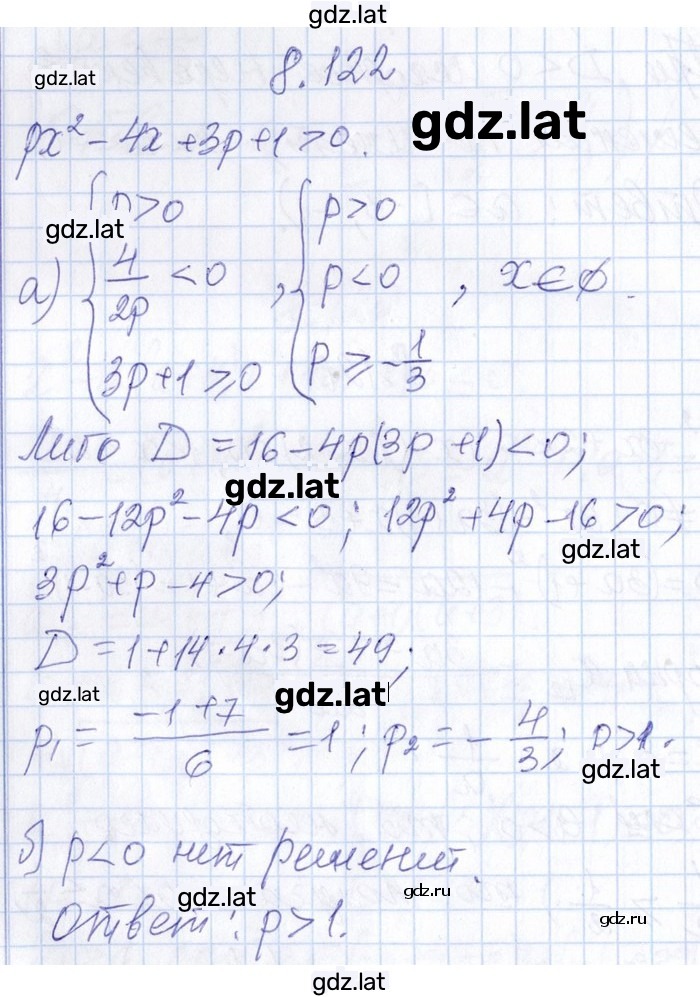 gdz.lat
8.122
gdz.lat
px² - 4x + 3p + 1 > 0.
gdz.lat
а) { p > 0 , { p > 0
gdz.lat
4/2p < 0 , p < 0 , x ∈ ∅.
3p + 1 ⩾ 0 p ⩾ -1/3
Либо D = 16 - 4p(3p + 1) < 0;
gdz.lat
16 - 12p² - 4p < 0; 12p² + 4p - 16 > 0;
gdz.lat
3p² + p - 4 > 0;
D = 1 + 14 · 4 · 3 = 49;
gdz.lat
gdz.lat
p₁ = (-1 + 7)/6 = 1; p₂ = -4/3; p > 1.
gdz.lat
б) p < 0 нет решений.
gdz.lat
gdz.ru
Ответ: p > 1.
gdz.ru
gdz.lat